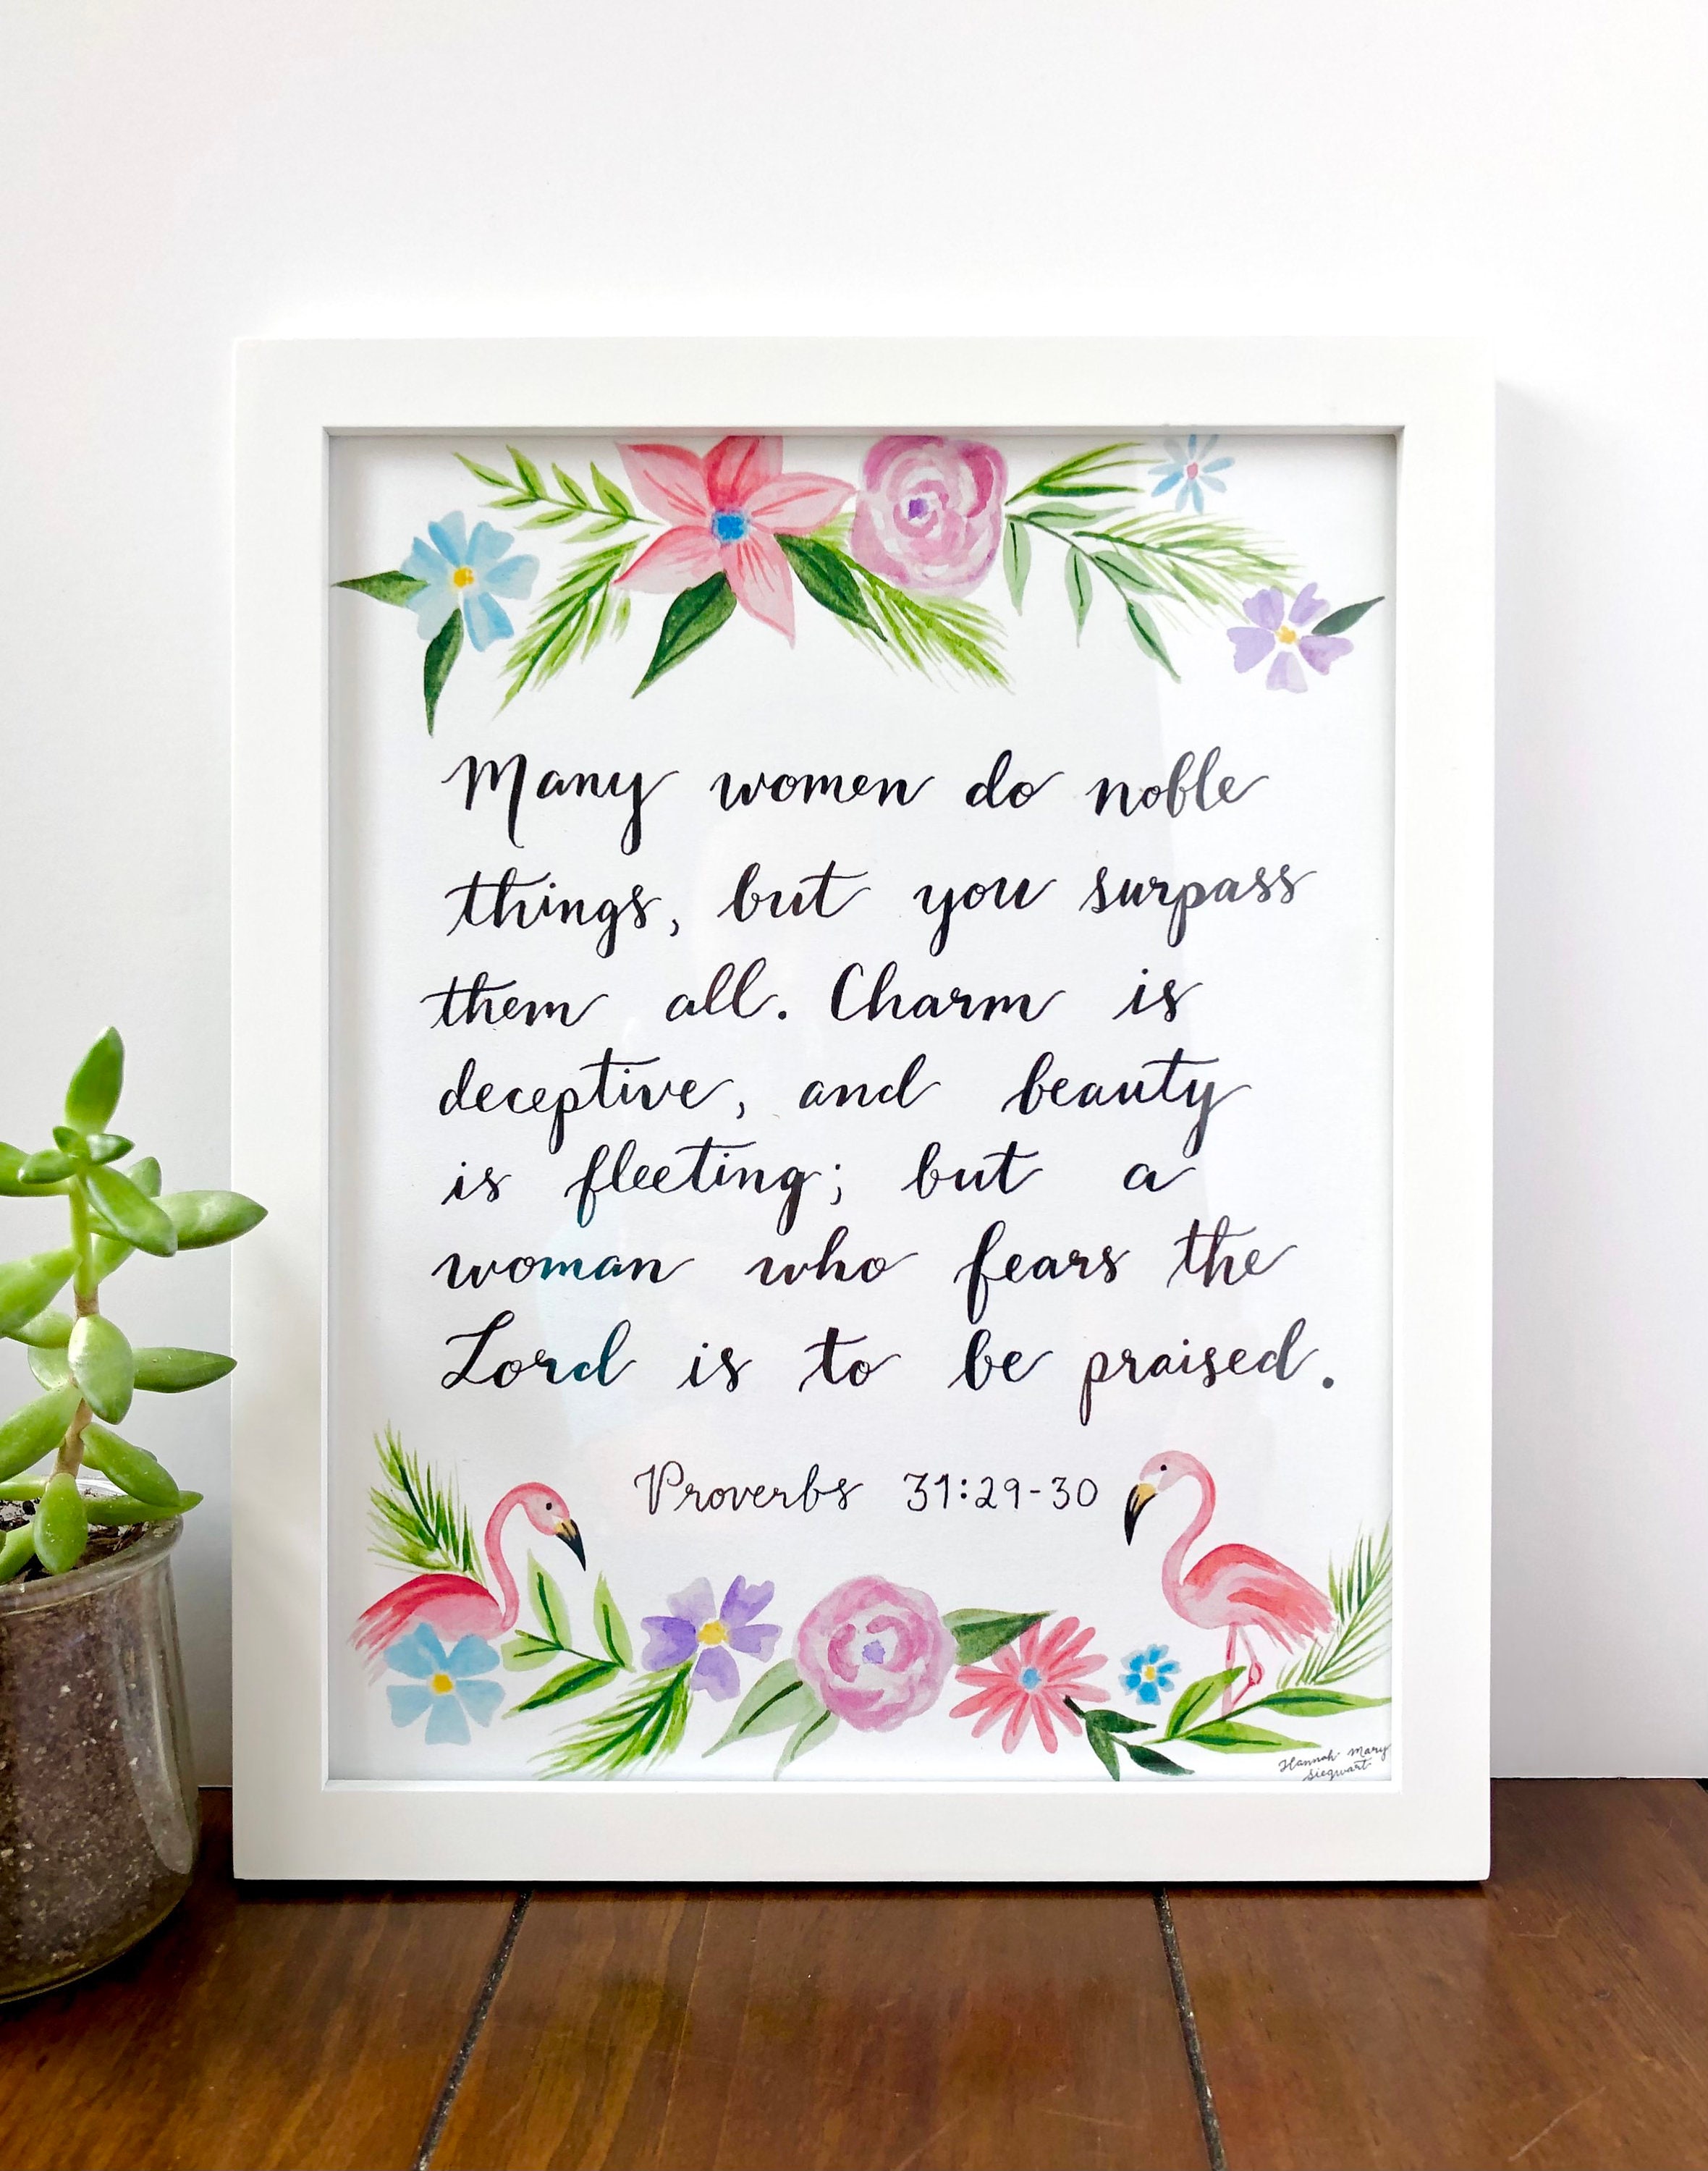 Many women do noble
things, but you surpass
them all. Charm is
deceptive, and beauty
is fleeting; but a
woman who fears the
Lord is to be praised.
Proverbs 31:29-30
Hannah Mary
Siegwart